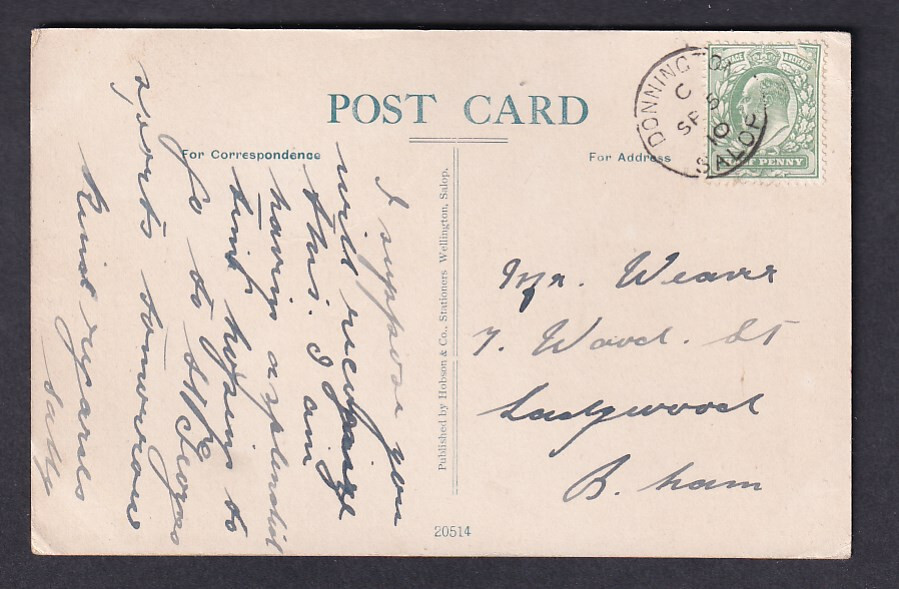 POST CARD
For Correspondence
For Address
DONNINGTON
C
SP 5
10
SALOP
HALF PENNY
I suppose you
will recognize
this. I am
having a splendid
time hoping to
go to St Georges
sports tomorrow
Kind regards
Sally
Published by Hobson & Co., Stationers Wellington, Salop.
Mr. Weaver
7. Wood. St
Ladywood
B. ham
20514